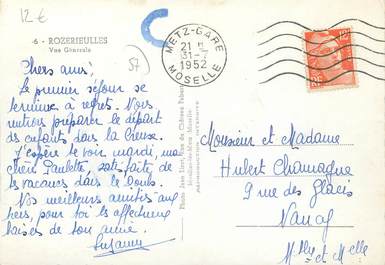 12€
-6- ROZERIEULLES
Vue Générale
57
METZ-GARE
21 H
31-7
1952
MOSELLE
Chers amis,
Le premier séjour se
termine à regrets. Nous
rentrons préparer le départ
des enfants dans la Creuse.
J'espère te voir mardi, ma
chère Paulette, satisfaite de
tes vacances dans le Doubs.
Nos meilleures amitiés aux
tiens, pour toi les affectueux
baisers de ton amie.
Suzanne
Monsieur et Madame
Hubert Champagne
9 rue des Glacis
Nancy
Mthe et Melle